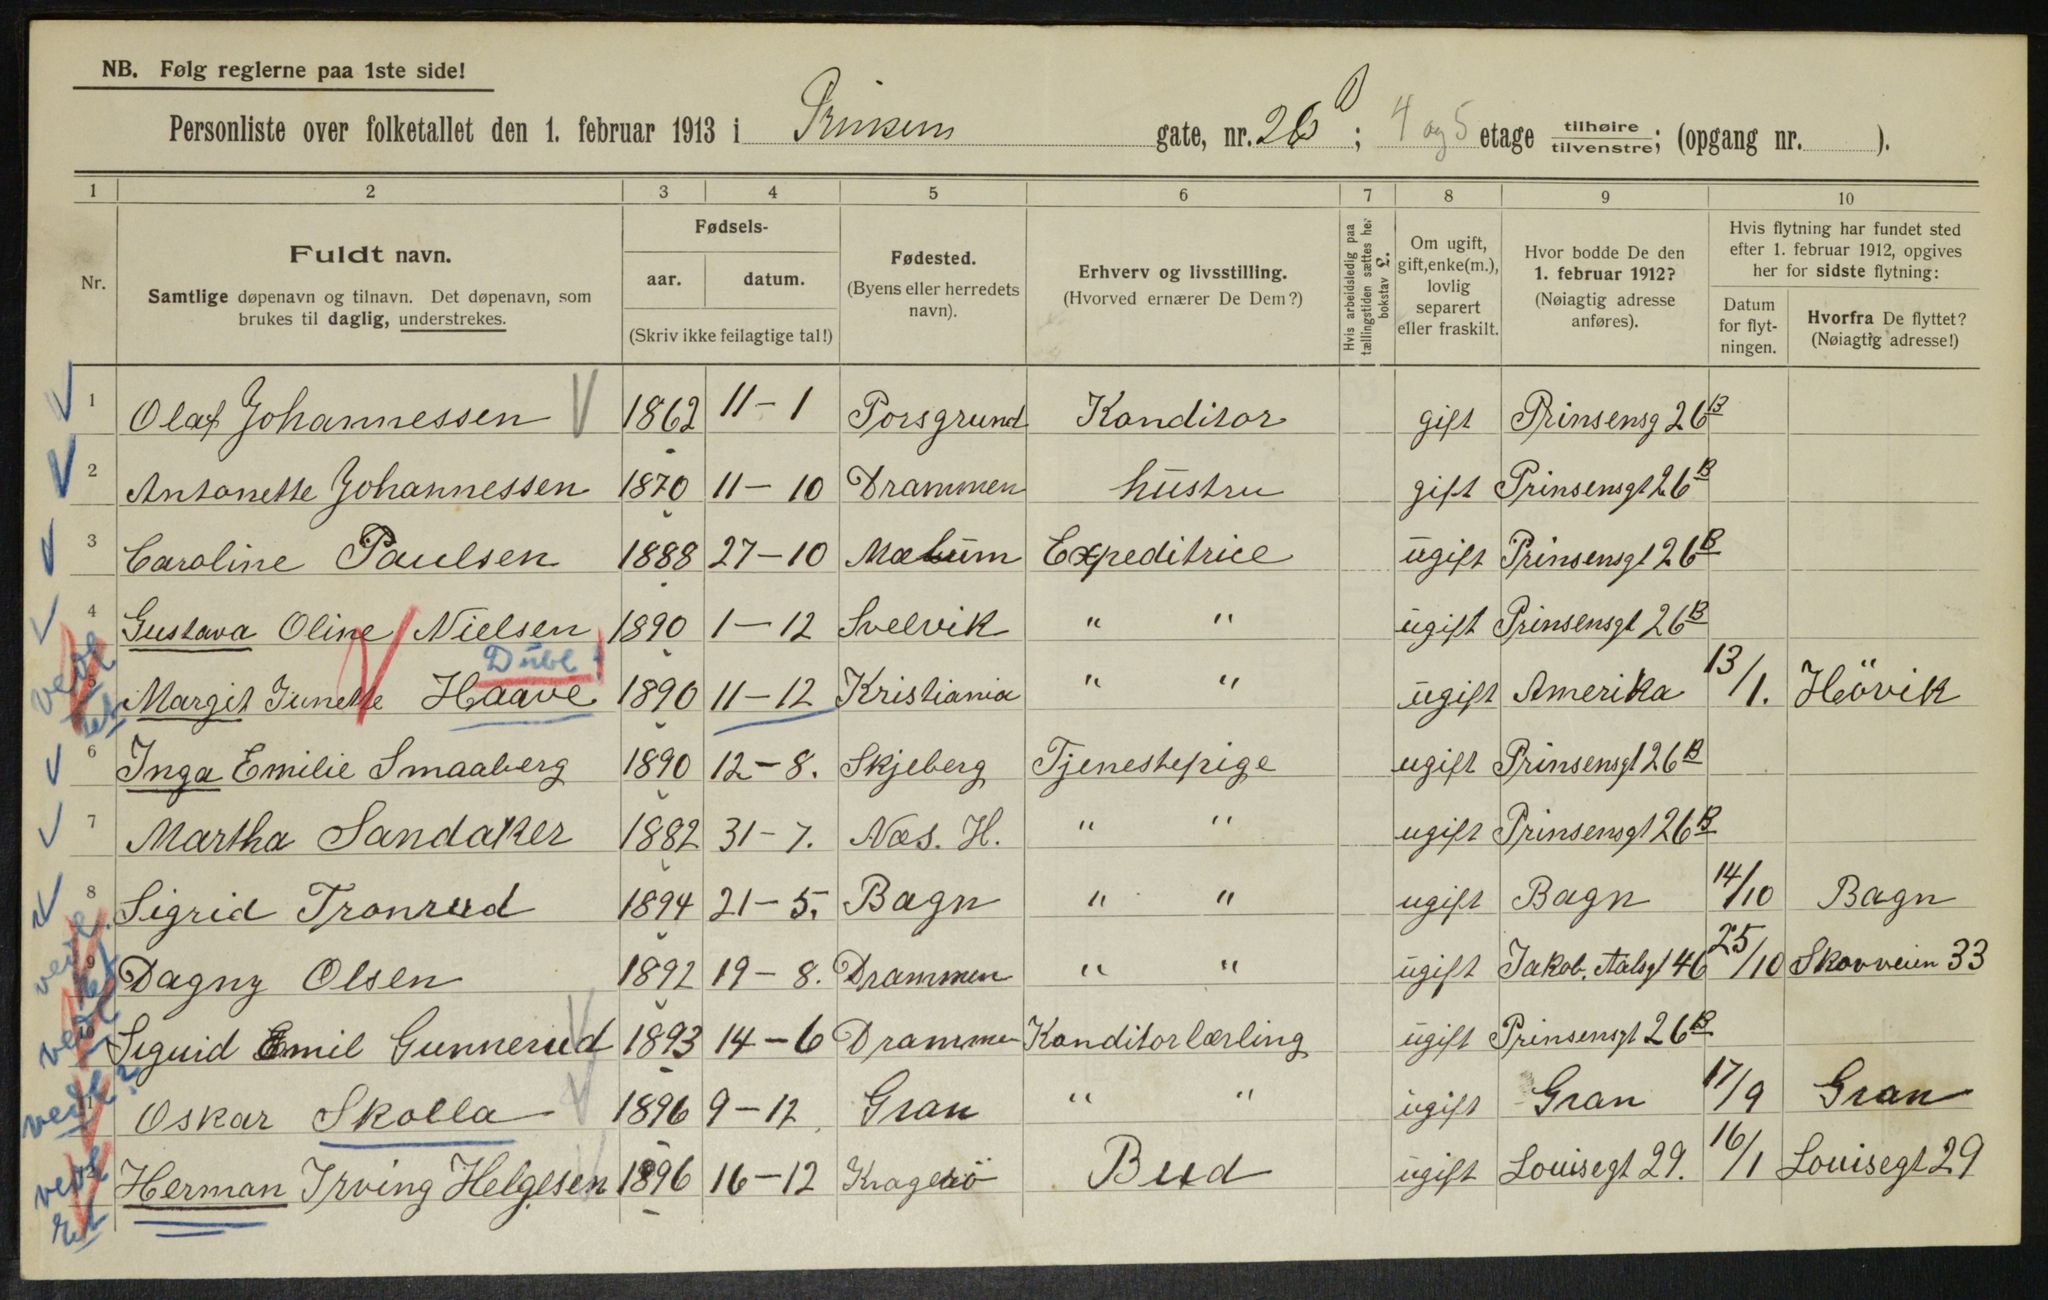 NB. Følg reglerne paa 1ste side!
Personliste over folketallet den 1. februar 1913 i Prinsens gate, nr. 26 B; 4 og 5 etage tilhøire/tilvenstre; (opgang nr. ).
1 2 3 4 5 6 7 8 9 10
Nr.
Fuldt navn.
Samtlige døpenavn og tilnavn. Det døpenavn, som
brukes til daglig, understrekes.
Fødsels-
aar. datum.
(Skriv ikke feilagtige tal!)
Fødested.
(Byens eller herredets
navn).
Erhverv og livsstilling.
(Hvorved ernærer De Dem?)
Hvis arbeidsledig paa
tællingstiden sættes her
bokstav L.
Om ugift,
gift, enke(m.),
lovlig
separert
eller fraskilt.
Hvor bodde De den
1. februar 1912?
(Nøiagtig adresse
anføres).
Hvis flytning har fundet sted
efter 1. februar 1912, opgives
her for sidste flytning:
Datum
for flyt-
ningen.
Hvorfra De flyttet?
(Nøiagtig adresse!)
1 Olaf Johannessen 1862 11-1 Porsgrund Konditor gift Prinsensg 26B
2 Antonette Johannessen 1870 11-10 Drammen hustru gift Prinsensgt 26B
3 Caroline Paulsen 1888 27-10 Mælum Expeditrice ugift Prinsensgt 26B
4 Gustava Oline Nielsen 1890 1-12 Svelvik " " ugift Prinsensgt 26B
Dubl!
5 Margit Haave 1890 11-12 Kristiania " " ugift Amerika 13/1. Hövik
6 Inga Emilie Smaaberg 1890 12-8. Skjeberg Tjenestepige ugift Prinsensgt 26B
7 Martha Sandaker 1882 31-7. Næs. H. " " ugift Prinsensgt 26B
8 Sigrid Tronrud 1894 21-5. Bagn " " ugift Bagn 14/10 Bagn
9 Dagny Olsen 1892 19-8. Drammen " " ugift Jakob. Aalsgt 46 25/10 Skovveien 33
10 Sigurd Emil Gunnerud 1893 14-6 Drammen Konditorlærling ugift Prinsensgt 26B
11 Oskar Skolla 1896 9-12 Gran " " ugift Gran 17/9 Gran
12 Herman Irving Helgesen 1896 16-12 Kragerö Bud ugift Louisegt 29. 16/1 Louisegt 29